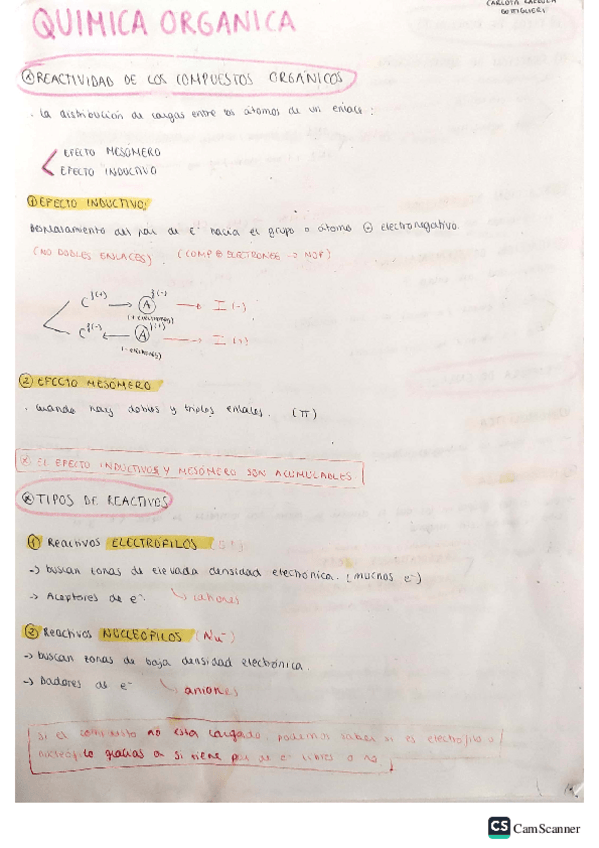 QUIMICA ORGANICA
CARLOTA
REACTIVIDAD DE LOS COMPUESTOS ORGÁNICOS
. La distribución de cargas entre los átomos de un enlace:
EFECTO MESÓMERO
EFECTO INDUCTIVO
① EFECTO INDUCTIVO:
Desplazamiento del par de e⁻ hacia el grupo o átomo ⊕ electronegativo.
(NO DOBLES ENLACES). (COMP ⊕ ELECTRONEG → NOF)
C δ(+) → A δ(-) → I (-)
(+ electroneg)
C δ(-) ← A δ(+) → I (+)
(- electroneg)
② EFECTO MESÓMERO
. Cuando hay dobles y triples enlaces. (π)
EL EFECTO INDUCTIVO Y MESÓMERO SON ACUMULABLES
TIPOS DE REACTIVOS
① Reactivos ELECTRÓFILOS
→ buscan zonas de elevada densidad electrónica. (muchos e⁻)
→ Aceptores de e⁻. ↳ cationes
② Reactivos NUCLEÓFILOS (Nu⁻)
→ buscan zonas de baja densidad electrónica.
→ Dadores de e⁻ ↳ aniones
Si el compuesto no está cargado, podemos saber si es electrófilo o
nucleófilo gracias a si tiene par de e⁻ libres o no.
CS CamScanner